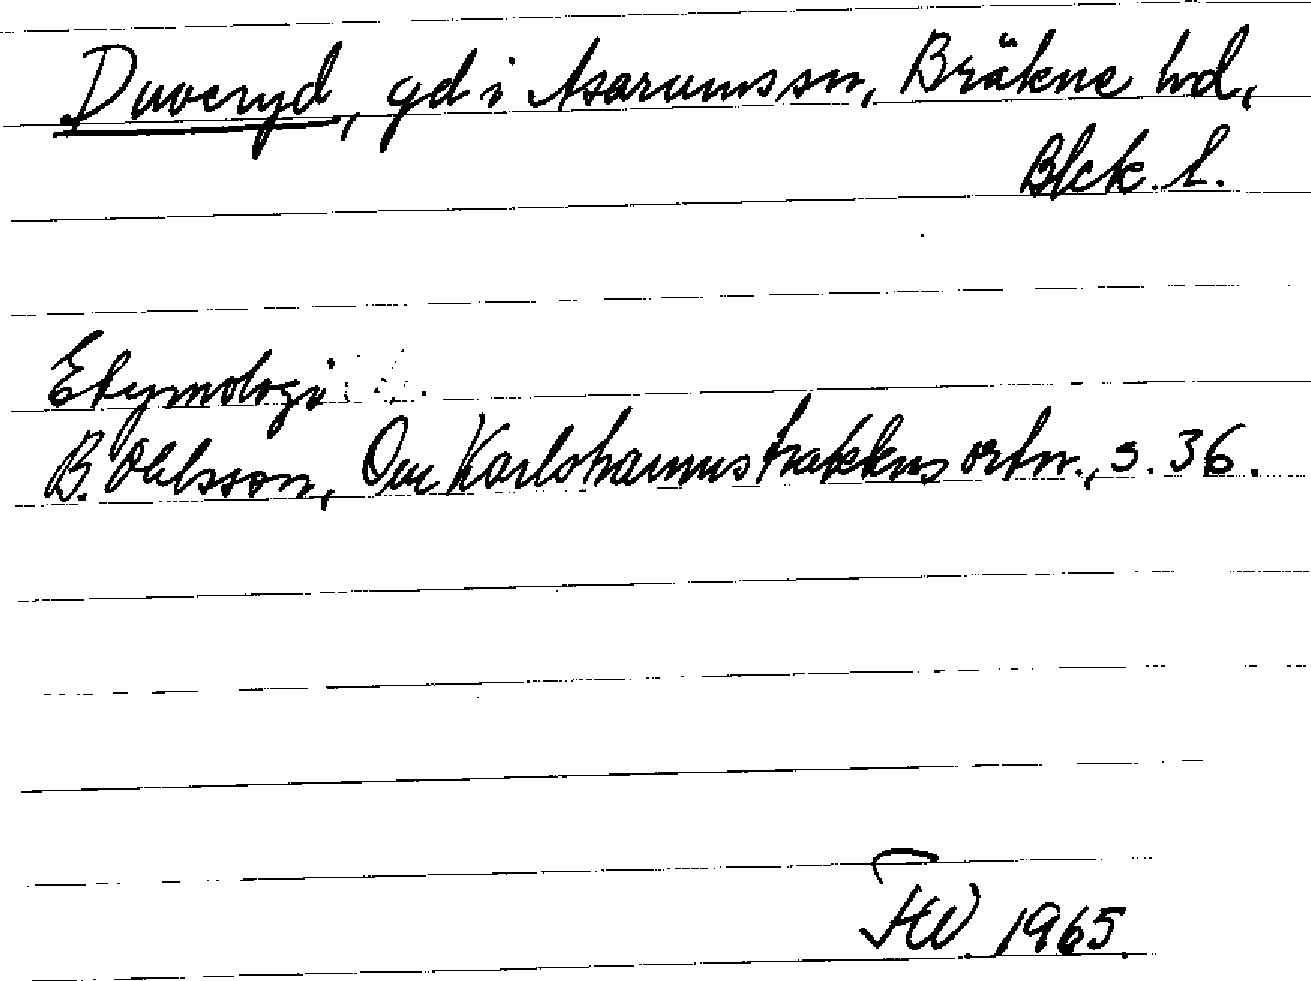 Duveryd, gd i Asarumssn, Bräkne hd,
Blek. l.
Etymologi
B. Ohlsson, Om Karlshamnstraktens ortn., s. 36.
FW. 1965.